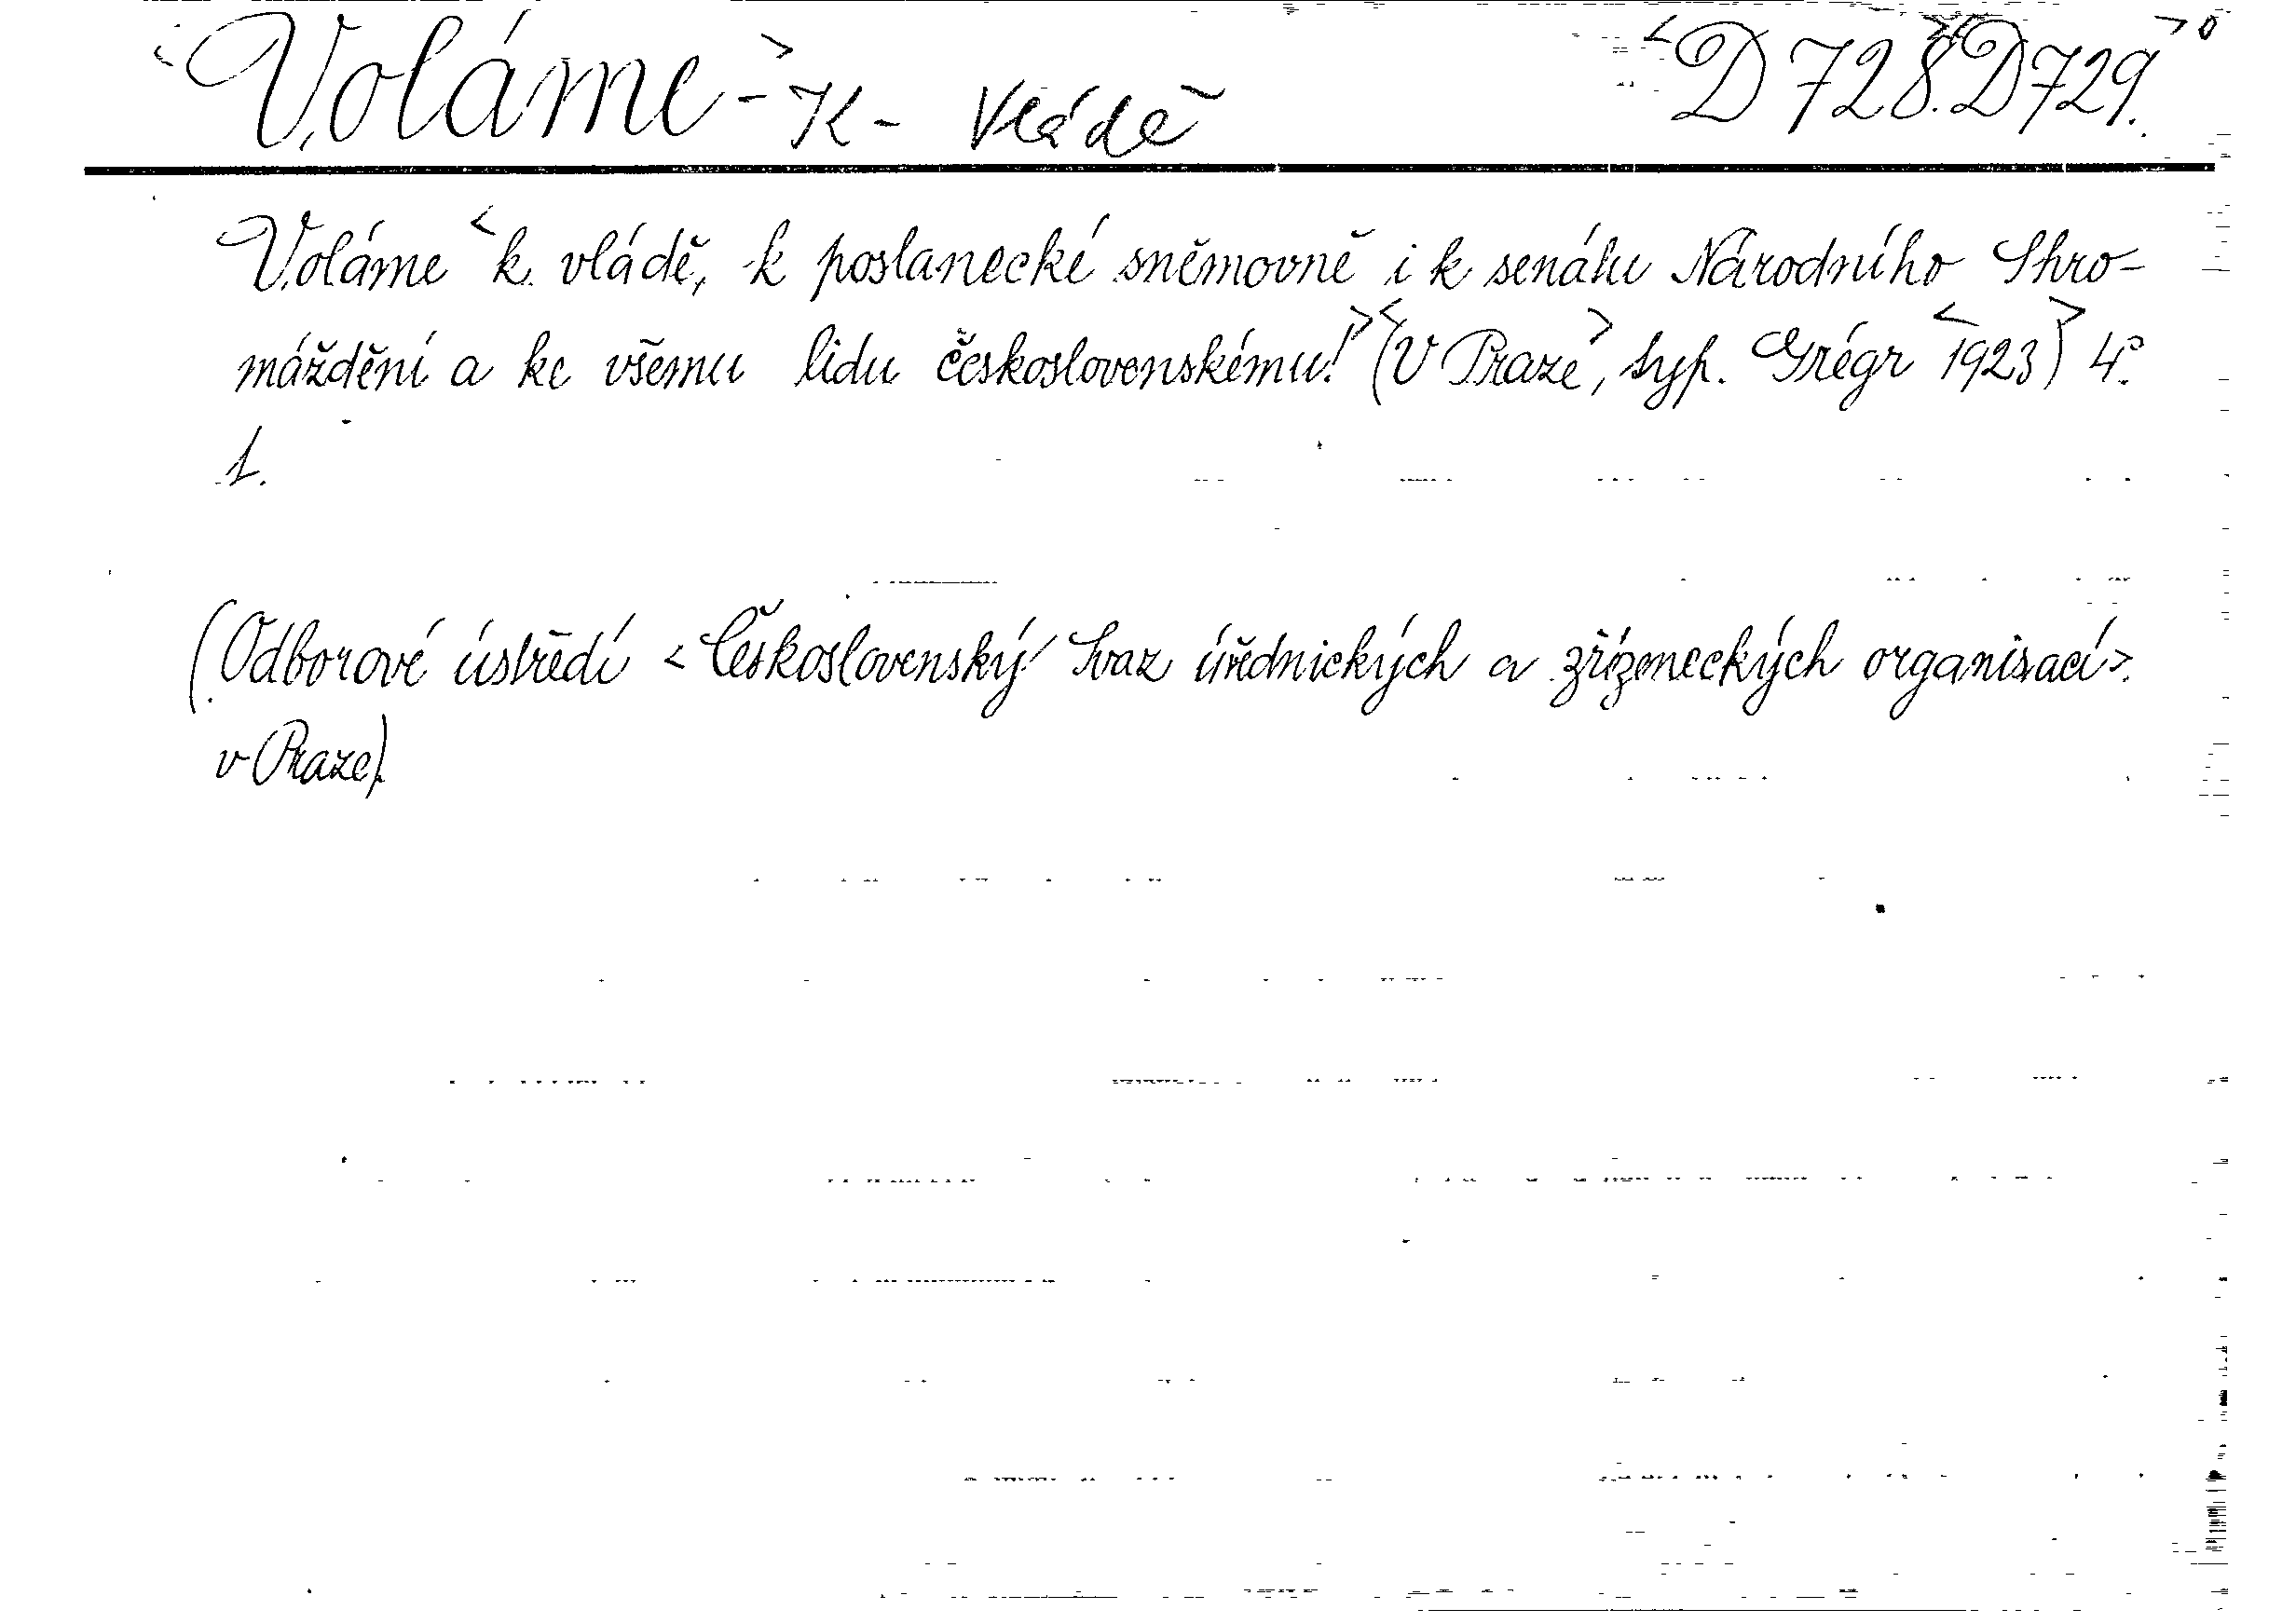 <Voláme> - K - vládě <D 728.><D 729.>
Voláme <k vládě, k poslanecké sněmovně i k senátu Národního Shro-
máždění a ke všemu lidu československému!> <(V Praze>, typ. Grégr <1923)> 4°.
1.
(Odborové ústředí <Československý svaz úřednických a zřízeneckých organisací>
v Praze).